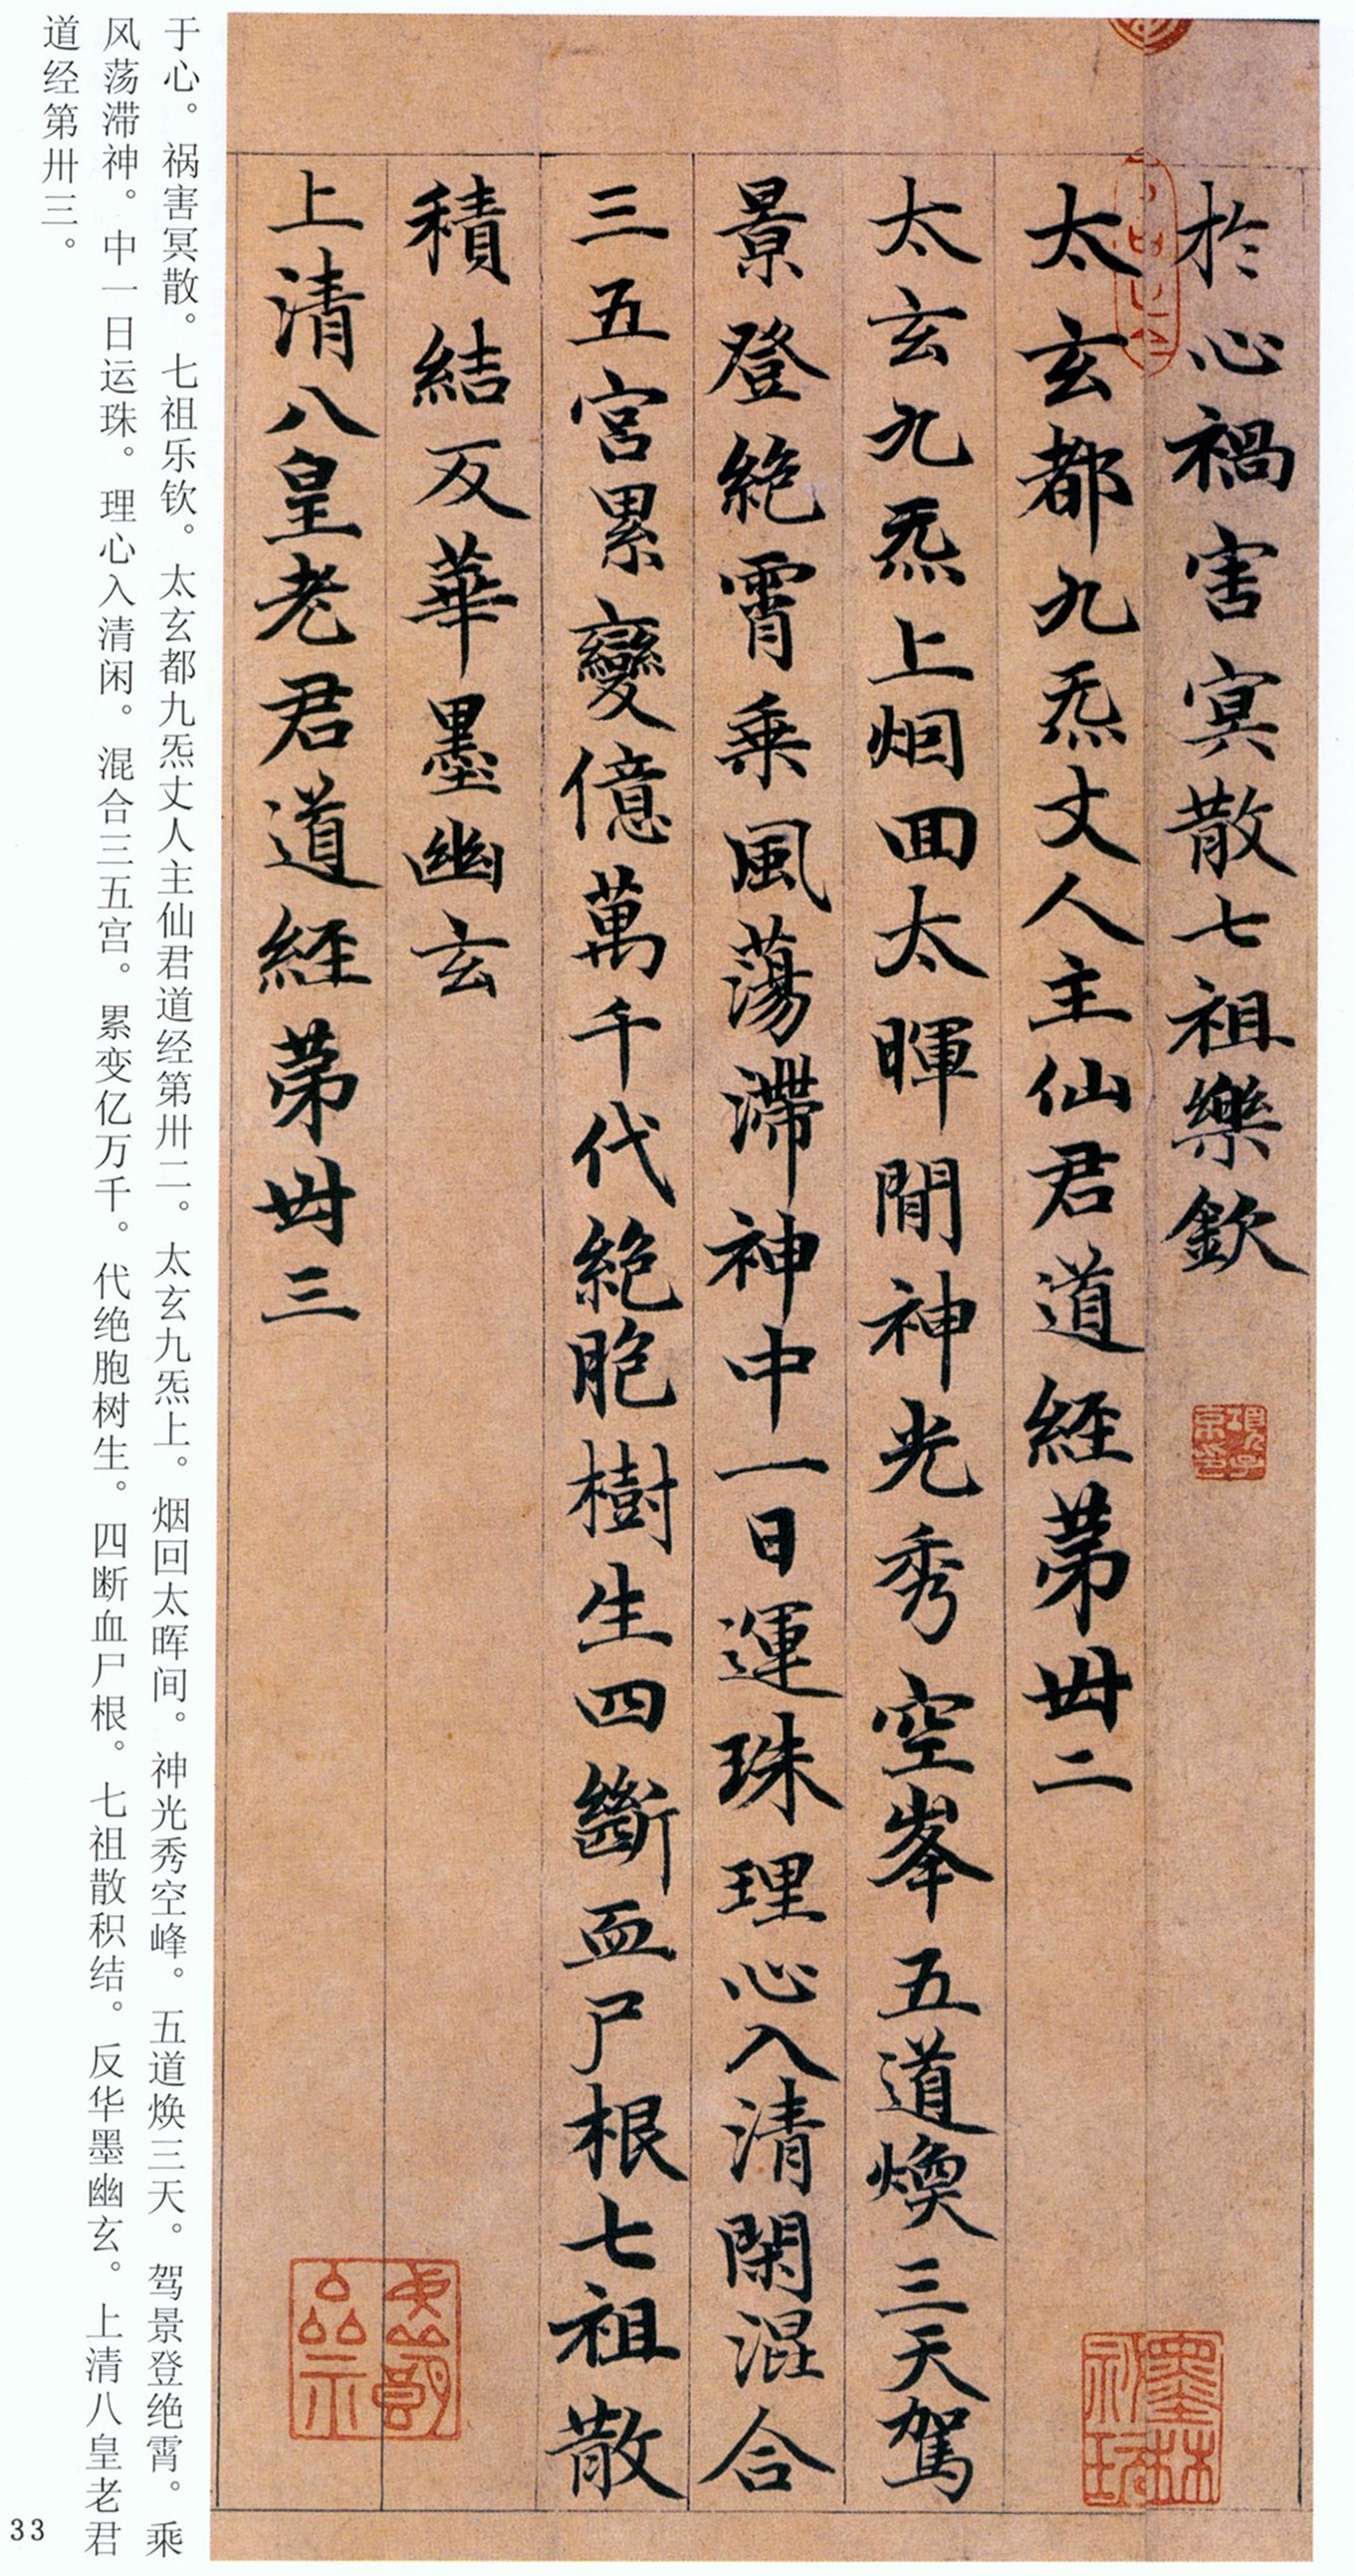 於心禍害冥散七祖樂欽
太玄都九炁丈人主仙君道經苐丗二
太玄九炁上烟回太暉間神光秀空峯五道煥三天駕
景登絕霄乘風蕩滯神中一日運珠理心入清閑混合
三五宮累變億萬千代絕胞樹生四斷血尸根七祖散
積結反華墨幽玄
上清八皇老君道經苐丗三
于心。祸害冥散。七祖乐钦。太玄都九炁丈人主仙君道经第卅二。太玄九炁上。烟回太晖间。神光秀空峰。五道焕三天。驾景登绝霄。乘
风荡滞神。中一日运珠。理心入清闲。混合三五宫。累变亿万千。代绝胞树生。四断血尸根。七祖散积结。反华墨幽玄。上清八皇老君
道经第卅三。
33